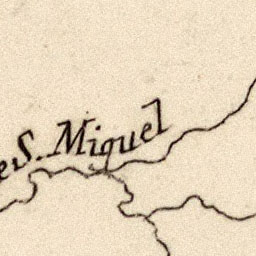 e S. Miquel